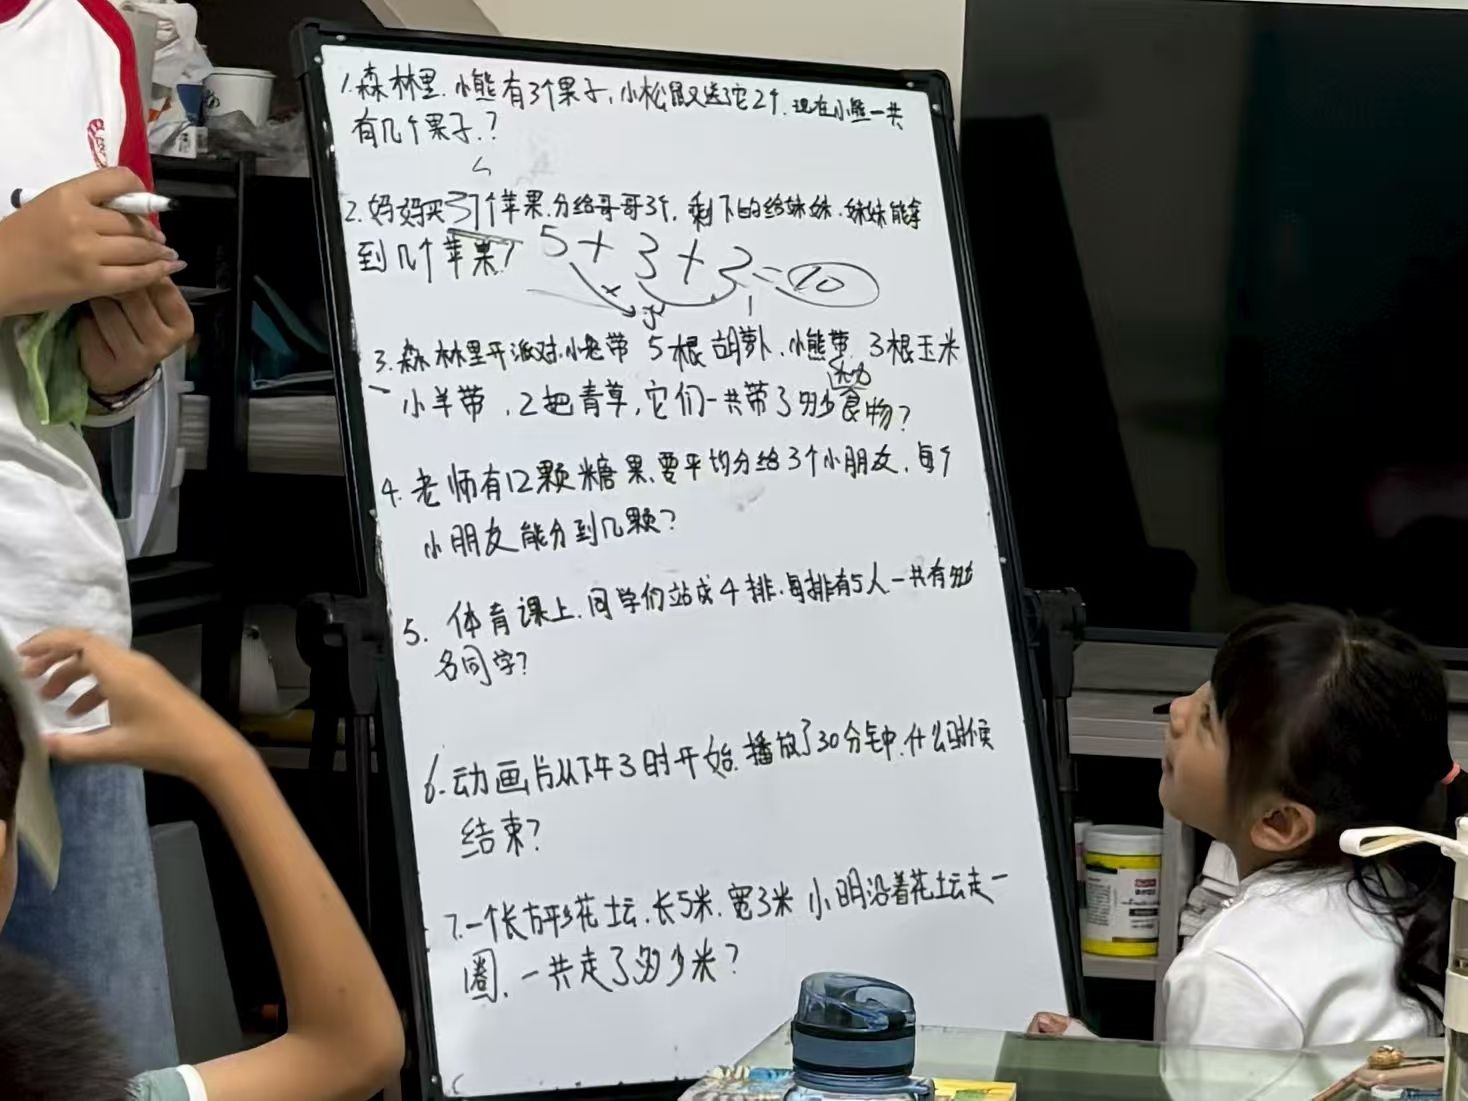 1.森林里.小熊有3个果子,小松鼠又送了它2个.现在小熊一共
有几个果子.?
2.妈妈买37个苹果.分给哥哥3个,剩下的给妹妹.妹妹能拿
到几个苹果?
5+3+2=10
3.森林里开派对.小兔带 5根胡萝卜.小熊带 3根玉米
小羊带,2把青草,它们一共带了多少食物?
4.老师有12颗糖果.要平均分给3个小朋友,每个
小朋友能分到几颗?
5. 体育课上.同学们站成4排.每排有5人一共有多少
名同学?
6.动画片从下午3时开始.播放了30分钟.什么时候
结束?
7.一个长方形花坛.长5米.宽3米 小明沿着花坛走一
圈.一共走了多少米?